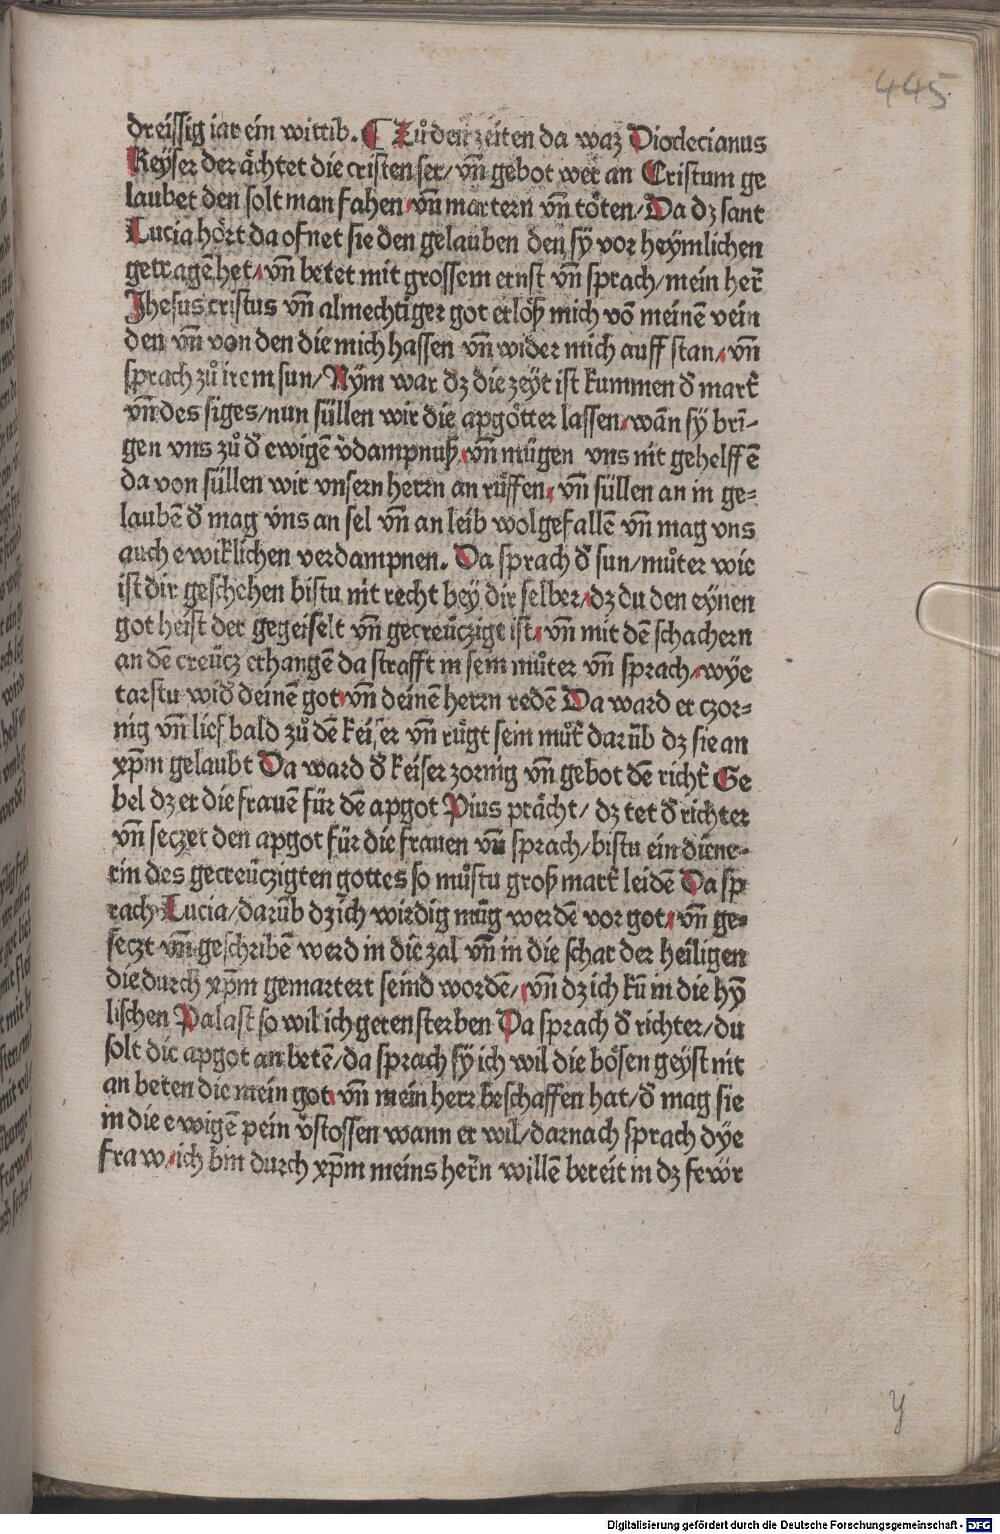 445
dreissig iar ein wittib. ¶ Zuͦ den zeiten da waz Diodecianus
Keyser der aͤchtet die cristen ser/ vn̄ gebot wer an Cristum ge
laubet den solt man fahen/ vn̄ martern vn̄ toͤten/ Da dz sant
Lucia hoͤrt da ofnet sie den gelauben den sÿ vor heÿmlichen
getragē het/ vn̄ betet mit grossem ernst vn̄ sprach/ mein her᷑
Jhesus cristus vn̄ almechtiger got erloͤß mich vō meinē vein
den vn̄ von den die mich hassen vn̄ wider mich auff stan/ vn̄
sprach zuͦ irem sun/ Nÿm war dz die zeÿt ist kummen d̄ mart᷑
vn̄ des siges/ nun süllen wir die apgoͤtter lassen/ wān sÿ brī-
gen vns zuͦ d̄ ewigē v̄dampnuß/ vn̄ mügen vns nit gehelffē
da von süllen wir vnsern herrn an rüffen/ vn̄ süllen an in ge-
laubē d̄ mag vns an sel vn̄ an leib wolgefallē vn̄ mag vns
auch ewiklichen verdampnen. Da sprach d̄ sun/ muͦter wie
ist dir geschehen bistu nit recht bey dir selber/ dz du den eÿnen
got heist der gegeiselt vn̄ gecreüczigt ist/ vn̄ mit dē schachern
an dē creücz erhangē da strafft in sein muͦter vn̄ sprach/ wÿe
tarstu wid̄ deinē got/ vn̄ deinē herrn redē Da ward er czor-
nig vn̄ lief bald zuͦ dē keiser vn̄ ruͤgt sein muͦt᷑ darüb dz sie an
xp̄m gelaubt Da ward d̄ keiser zornig vn̄ gebot dē richt᷑ Ge
bel dz er die frauē für dē apgot Pius praͤcht/ dz tet d̄ richter
vn̄ seczet den apgot für die frauen vn̄ sprach/ bistu ein diene-
rin des gecreüczigten gottes so muͦstu groß mart᷑ leidē Da sp
rach Lucia/ darüb dz ich wirdig müg werdē vor got/ vn̄ ge-
seczt vn̄ geschribē werd in die zal vn̄ in die schar der heiligen
die durch xp̄m gemartert seind wordē/ vn̄ dz ich kū in die hȳ
lischen Palast so wil ich geren sterben Da sprach d̄ richter/ du
solt die apgot an betē/ da sprach sÿ ich wil die boͤsen geÿst nit
an beten die mein got/ vn̄ mein herr beschaffen hat/ d̄ mag sie
in die ewigē pein v̄stossen wann er wil/ darnach sprach dÿe
fraw/ ich bin durch xp̄m meins her᷑n willē bereit in dz fewr
y
Digitalisierung gefördert durch die Deutsche Forschungsgemeinschaft - DFG